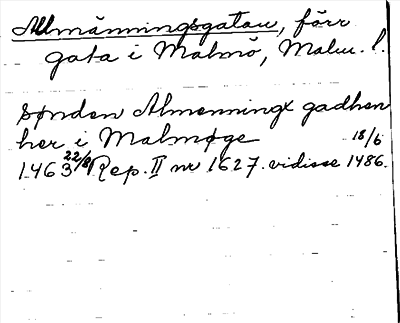 Allmänningsgatan, förr
gata i Malmö, Malm. l.
sønden Almenningx gadhen
her i Malmøge
1463 22/8 Rep. II nr 1627. vidisse 18/6 1486.